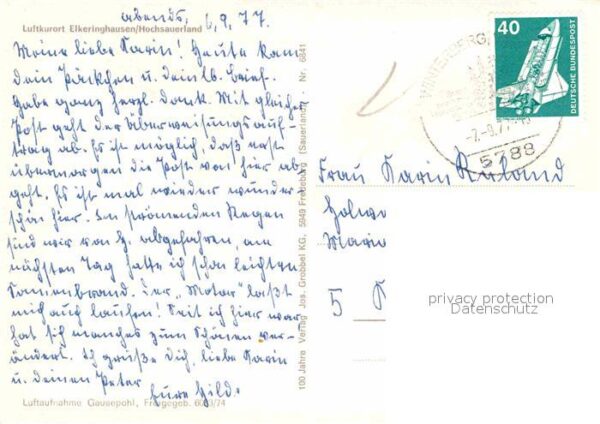 abends, 6.9.77
Luftkurort Elkeringhausen/Hochsauerland
Meine liebe Karin! Heute kam
dein Päckchen u. dein lb. Brief.
Habe ganz herzl. Dank. Mit gleicher
Post geht der Überweisungsauf-
trag ab. Es ist möglich, daß erst
übermorgen die Post von hier ab-
geht. Es ist mal wieder wunder-
schön hier. Im strömenden Regen
sind wir von H. abgefahren, am
nächsten Tag hatte ich schon leichten
Sonnenbrand. Der „Motor" läßt
mich auch laufen! Seit ich hier war
hat sich manches zum Schönen ver-
ändert. Ich grüße dich, liebe Karin
u. deinen Peter
Eure Hild.
Luftaufnahme Gausepohl, Freigegeb. 6013/74
100 Jahre Verlag Jos. Grobbel KG, 5949 Fredeburg (Sauerland) · Nr. 6641
40
DEUTSCHE BUNDESPOST
WINTERBERG,
-7.-9.77
5788
Frau Karin Ruland
5
privacy protection
Datenschutz